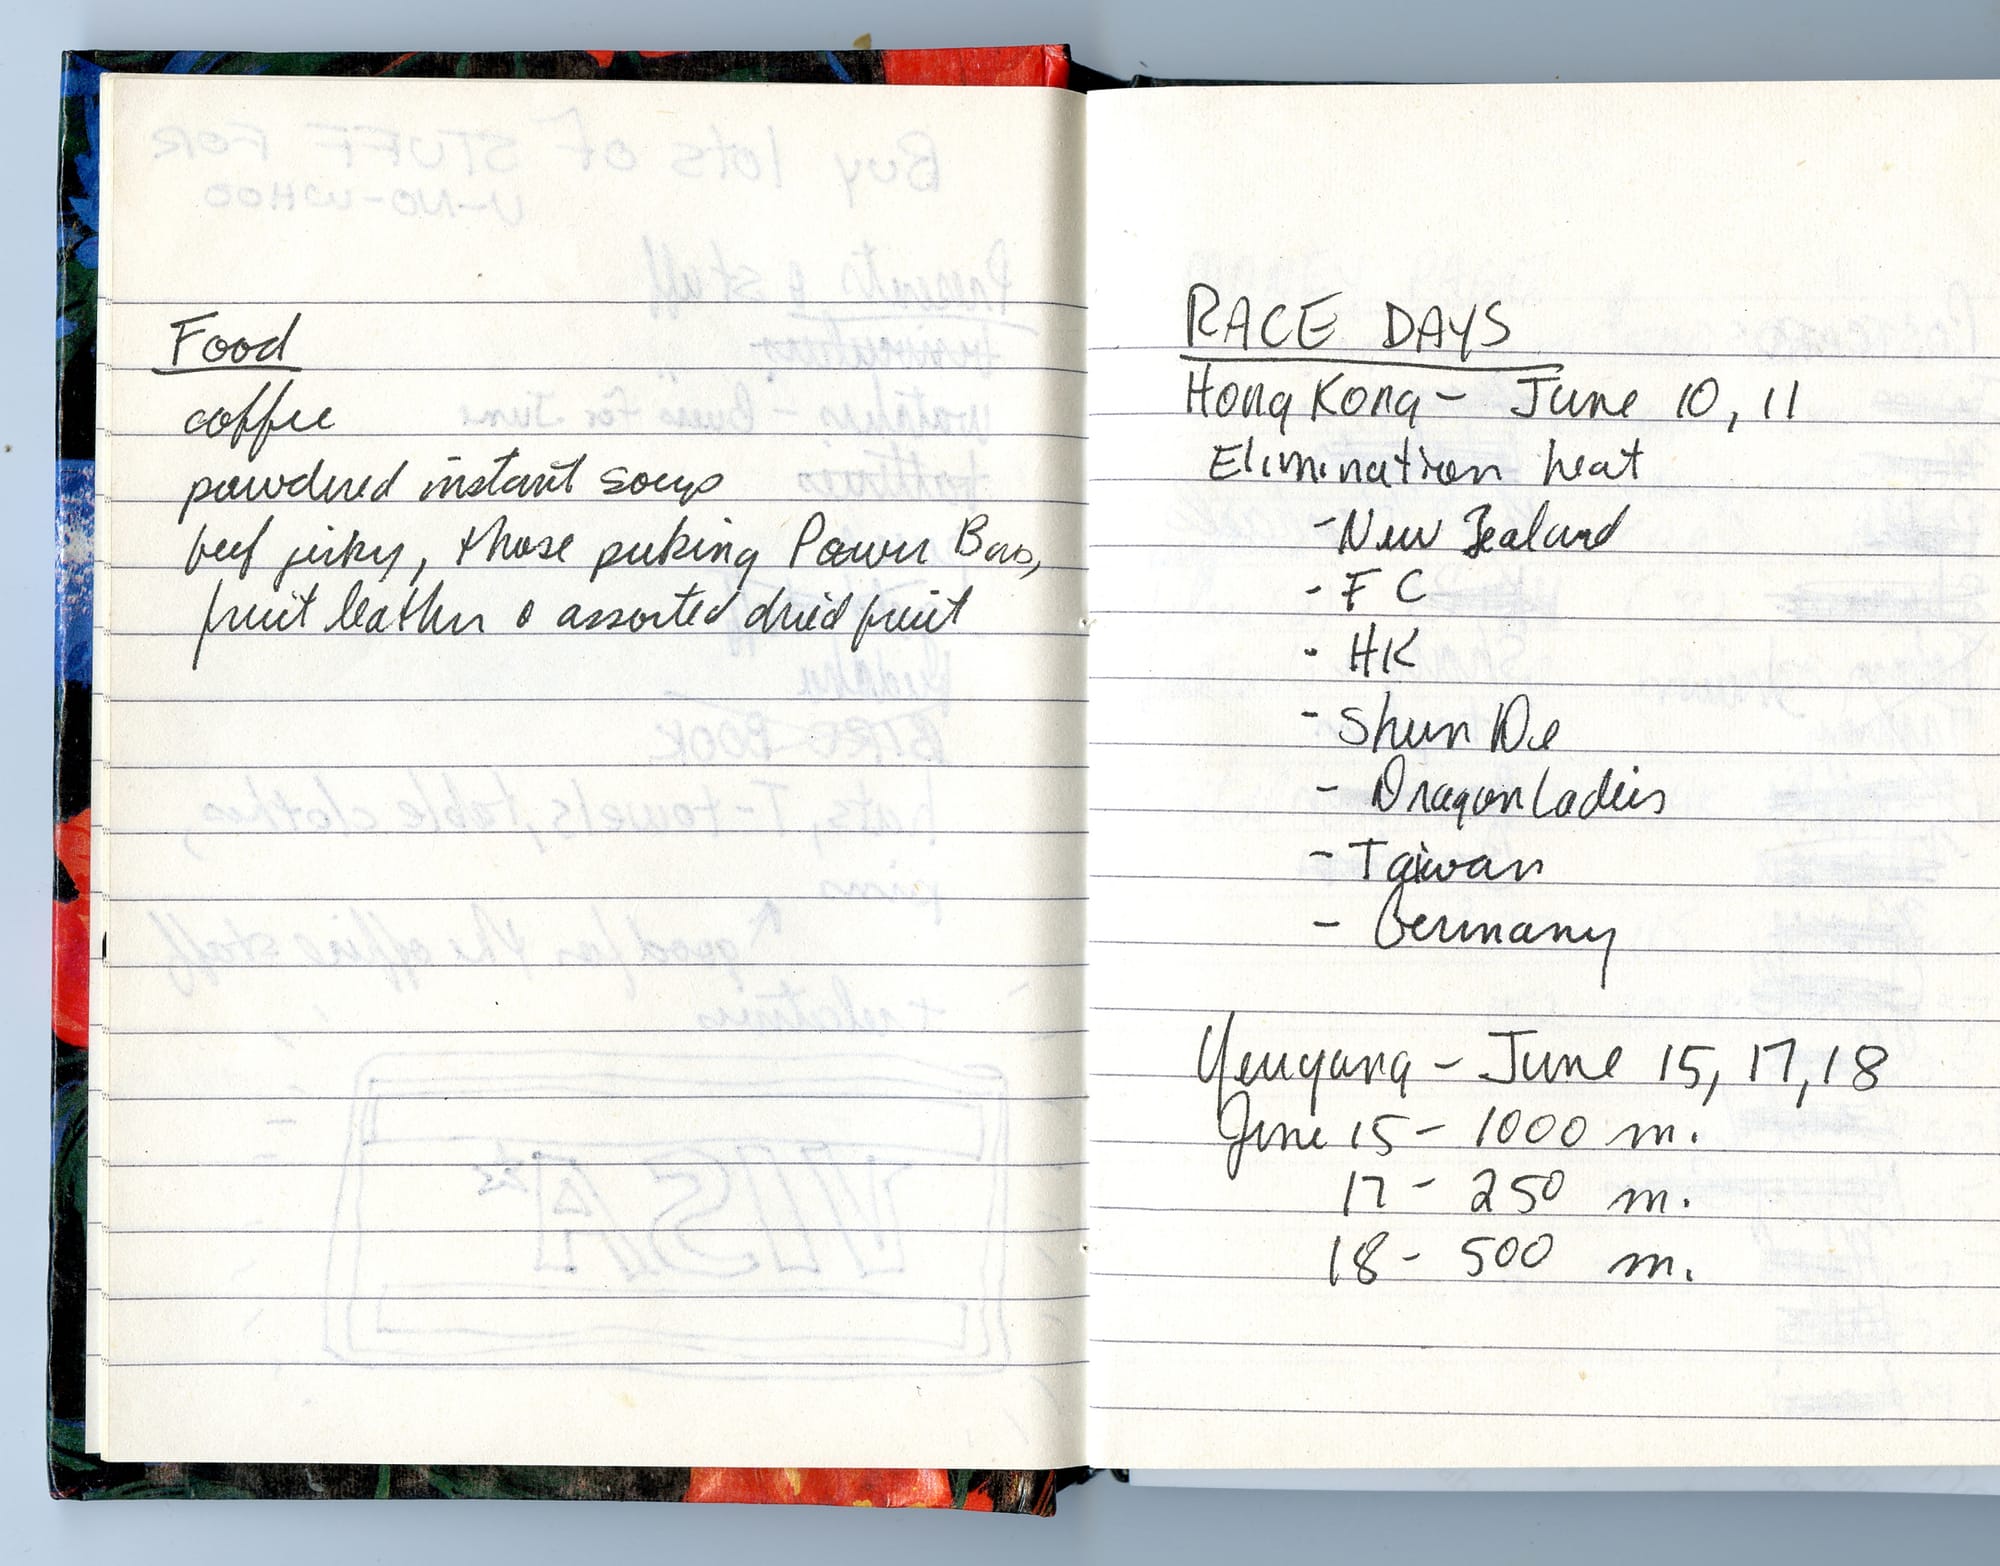 Food
coffee
powdered instant soup
beef jerky, those puking Power Bars,
fruit leather & assorted dried fruit
RACE DAYS
Hong Kong - June 10, 11
Elimination heat
- New Zealand
- FC
- HK
- Shun De
- Dragon Ladies
- Taiwan
- Germany
Yeuyang - June 15, 17, 18
June 15 - 1000 m.
17 - 250 m.
18 - 500 m.